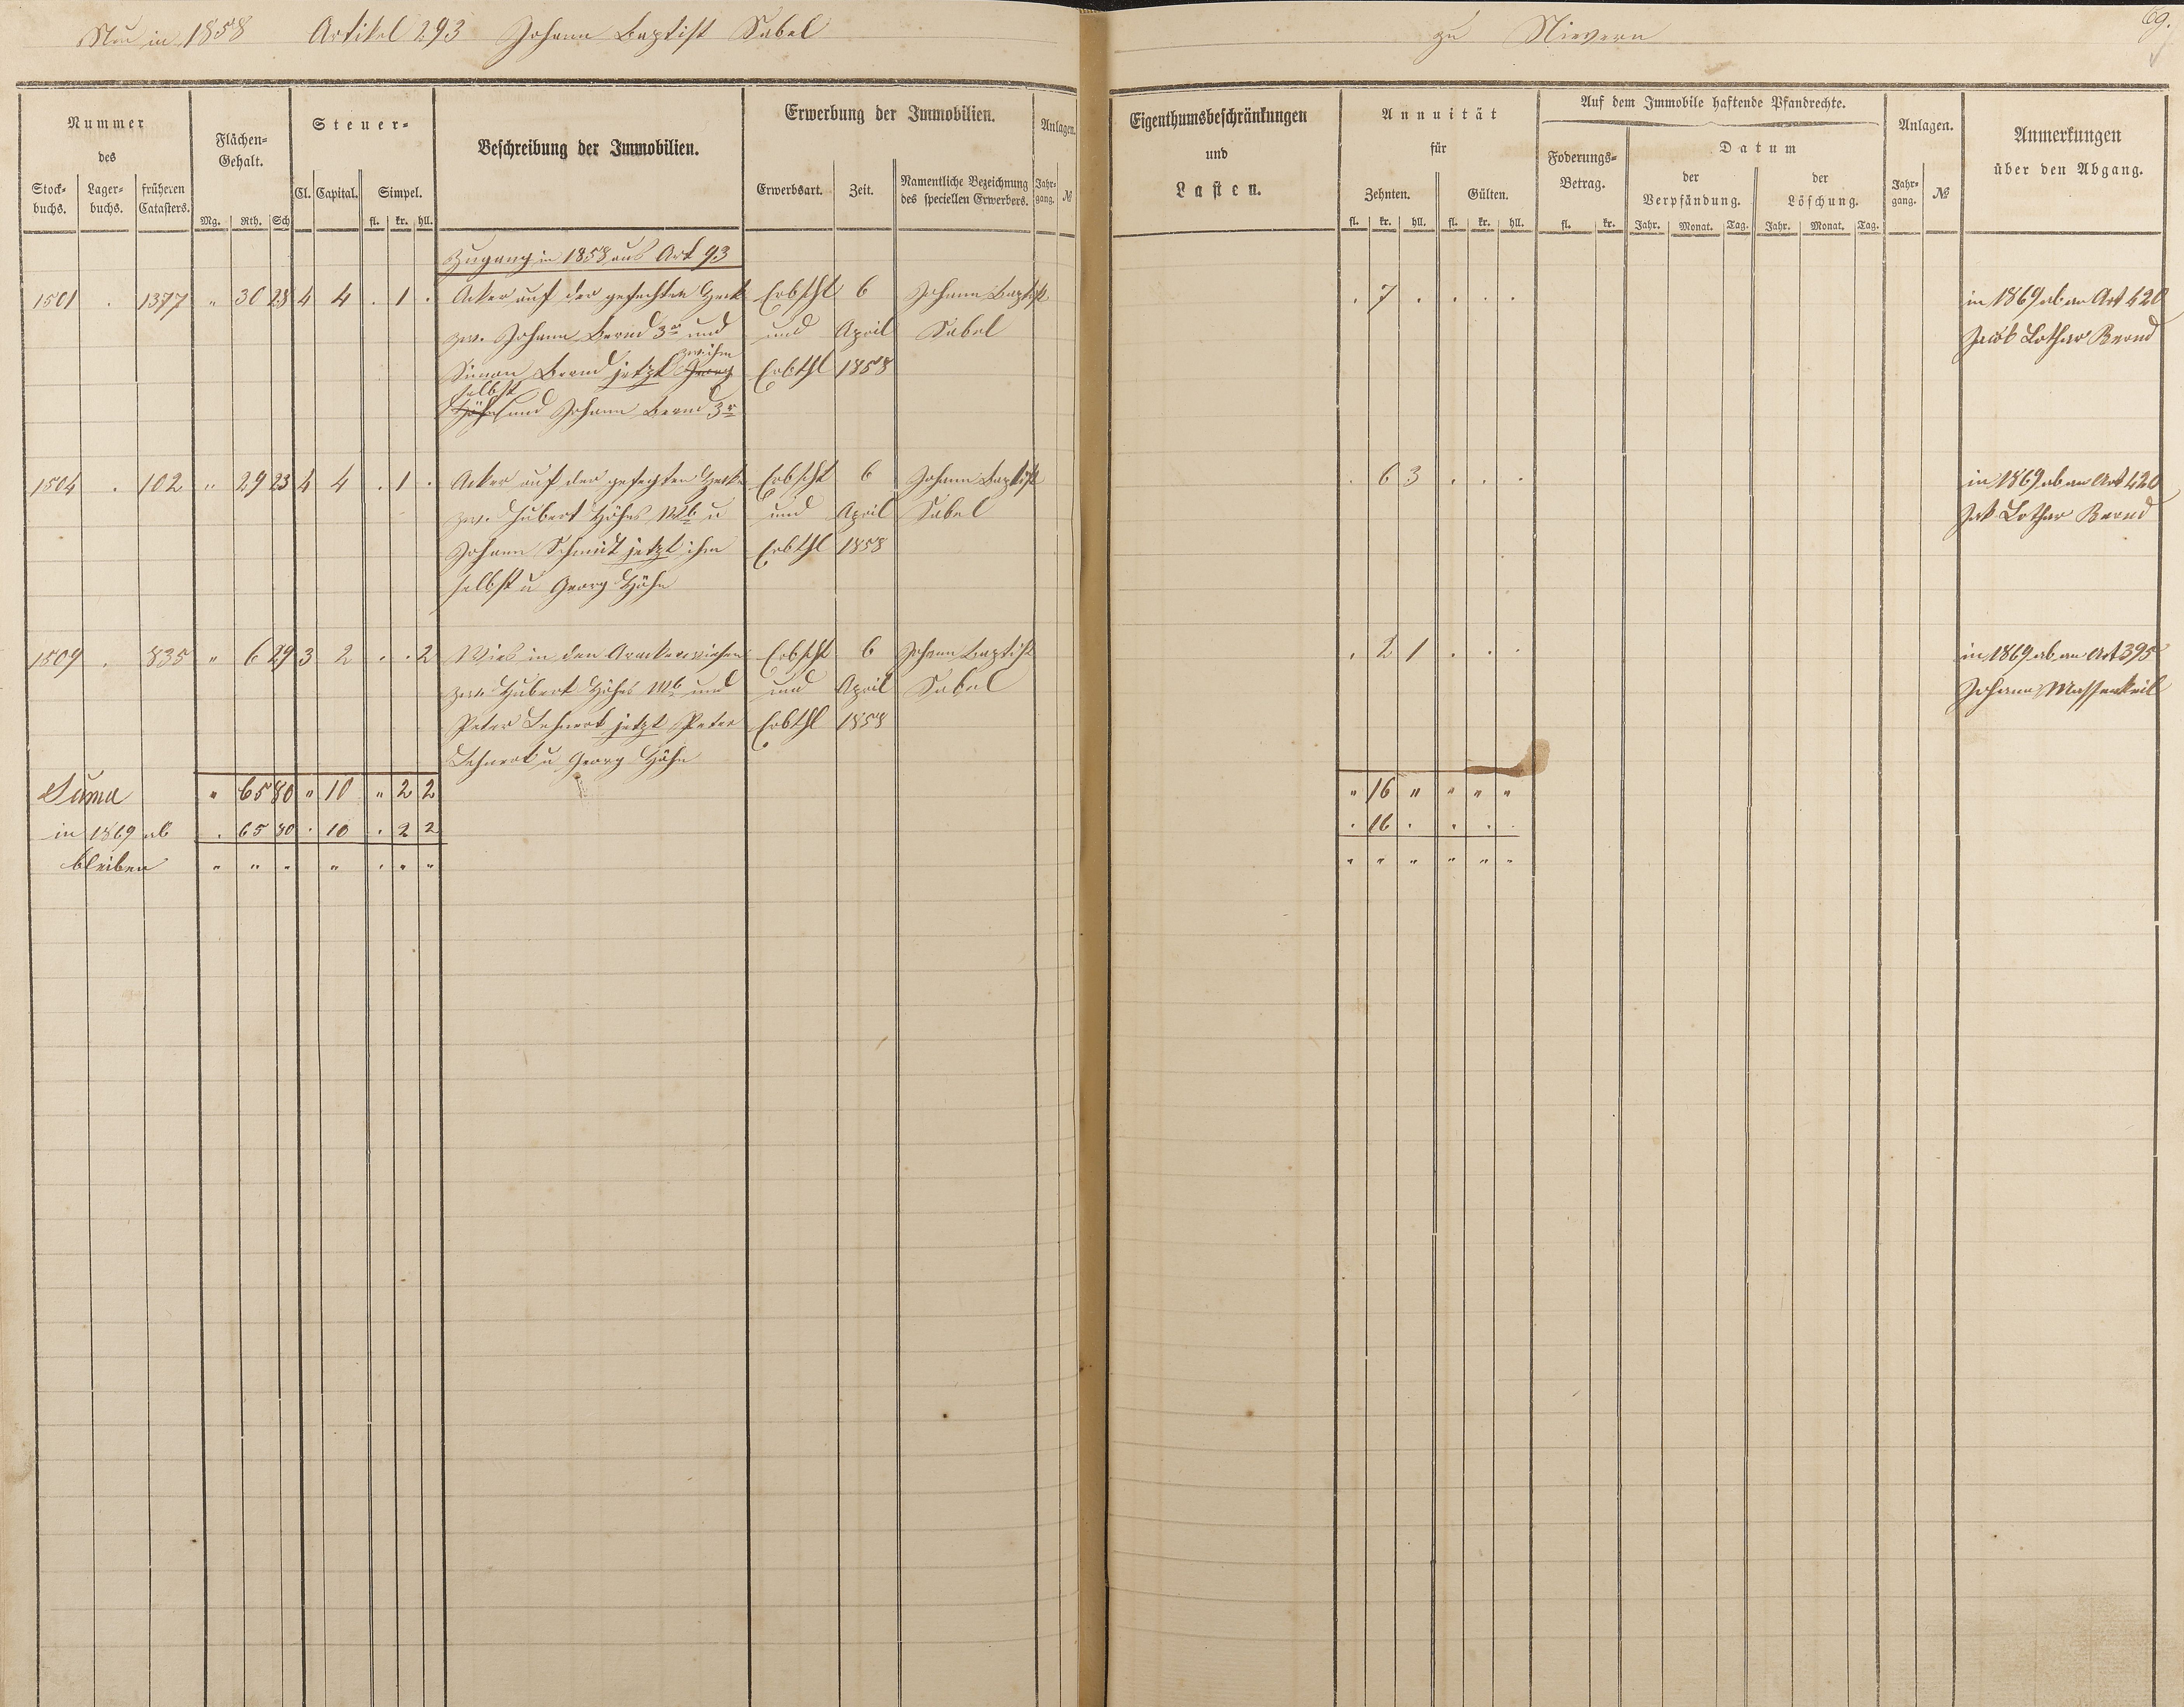 Neu in 1858 Artikel 293 Johann Baptist Sabel zu Nievern 69.
Nummer des
Stock-buchs. Lager-buchs. früheren Catasters.
Flächen-Gehalt.
Mg. Rth. Sch
Steuer-
Cl. Capital. Simpel.
fl. kr. hll.
Beschreibung der Immobilien.
Erwerbung der Immobilien.
Erwerbsart. Zeit. Namentliche Bezeichnung des speciellen Erwerbers.
Anlagen.
Jahr-gang. №
Eigenthumsbeschränkungen
und
Lasten.
Annuität
für
Zehnten. Gülten.
fl. kr. hll. fl. kr. hll.
Auf dem Immobile haftende Pfandrechte.
Foderungs-Betrag.
fl. kr.
Datum
der Verpfändung. der Löschung.
Jahr. Monat. Tag. Jahr. Monat. Tag.
Anlagen.
Jahr-gang. №
Anmerkungen
über den Abgang.
Zugang in 1858 aus Art 93
1501 . 1377 " 30 28 4 4 . 1 . Acker auf der gefechten Heck Erbschft 6 Johann Baptist . 7 . . . . in 1869 ab an Art 420
zw. Johann Bernd 3r und und April Sabel Jacob Lothar Bernd
zw ihm
Simon Bernd jetzt Georg Erbthl 1858
selbst
Höhn und Johann Bernd 3r
1504 . 102 " 29 23 4 4 . 1 . Acker auf der gefechten Heck Erbschft 6 Johann Baptist . 6 3 . . . in 1869 ab an Art 420
zw. Hubert Höhns Wb u und April Sabel Jak Lothar Bernd
Johann Schmidt jetzt ihm Erbthl 1858
selbst u Georg Höhn
1509 . 835 " 6 29 3 2 . . 2 Wies in den Arackerwiesen Erbschft 6 Johann Baptist . 2 1 . . . in 1869 ab an Art 395
zw. Hubert Höhns Wb und und April Sabel Johann Massenkeil
Peter Lehnert jetzt Peter Erbthl 1858
Lehnert u Georg Höhn
Suma " 65 80 " 10 " 2 2 " 16 " " " "
in 1869 ab . 65 80 . 10 . 2 2 . 16 . . . .
bleiben " " " " " " " " " " " " "